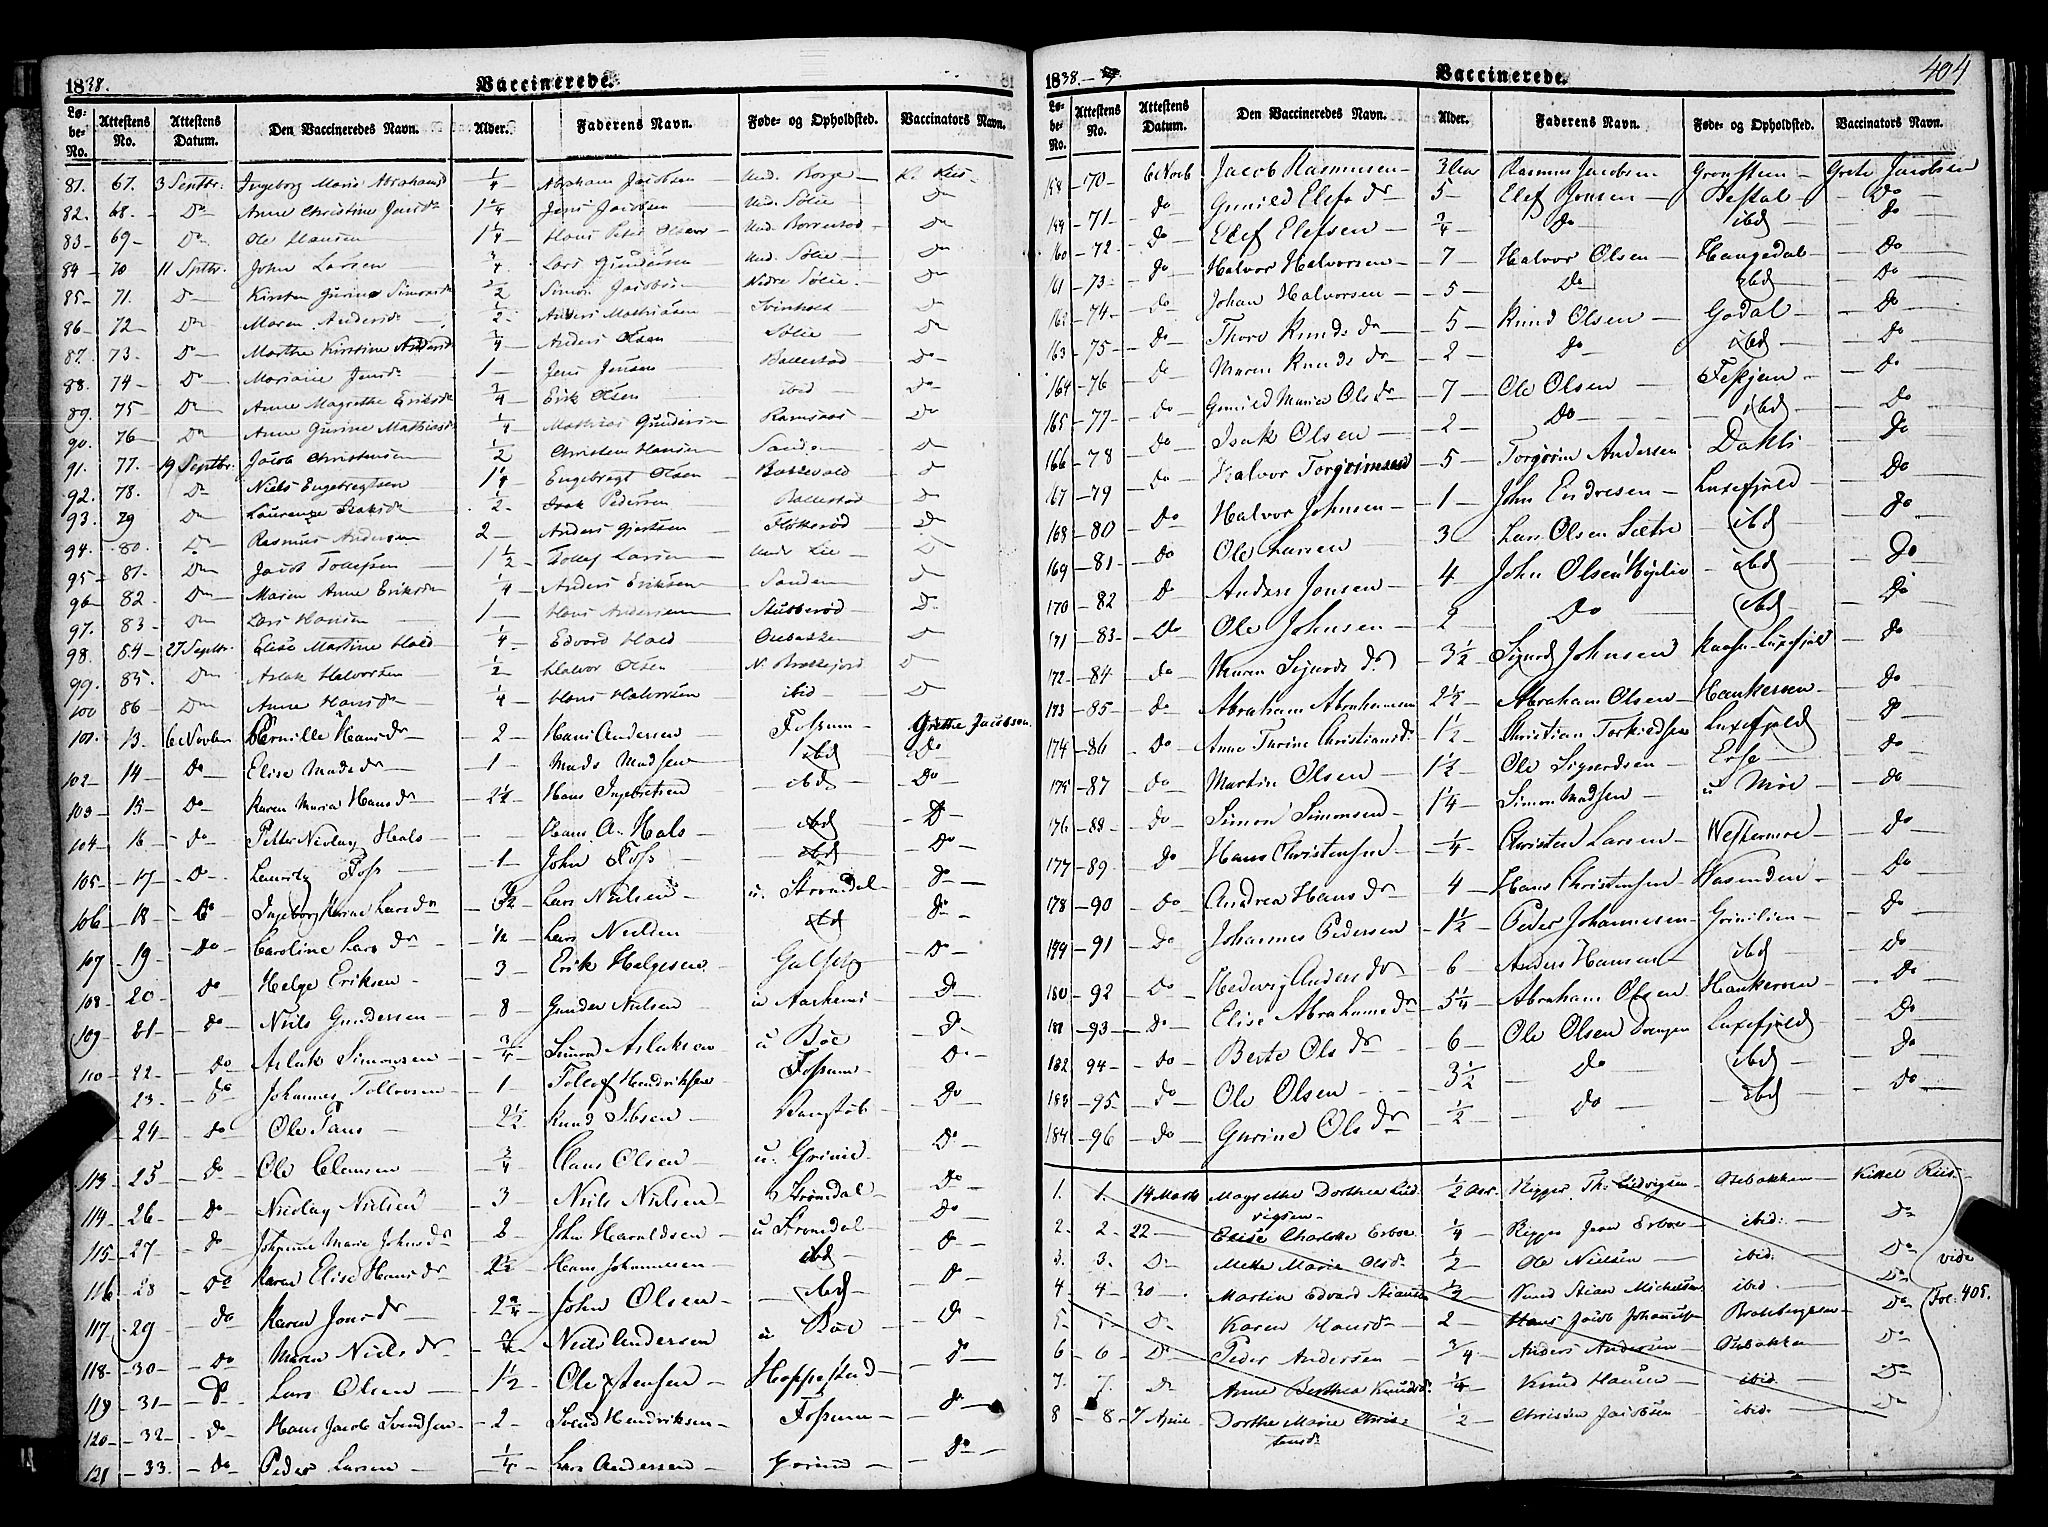 1838.
Vaccinerede.
Lø-
be-
No.
Attestens
No.
Attestens
Datum.
Den Vaccineredes Navn.
Alder.
Faderens Navn.
Føde- og Opholdsted.
Vaccinators Navn.
81. 67. 3 Septbr. Ingeborg Marie Abrahamsd 1/4 Abraham Jacobsen Und. Borge
82. 68. Do Anne Christine Jensdr Jens Jacobsen Und. Sølie Do
83. 69 Do Ole Hansen 1 1/4 Hans Peter Olsen Und. Borrestad Do
84 70 11 Sptbr. John Larsen 3/4 Lars Gundersen Und. Sølie Do
85 71. Do Kirsten Gurine Simonsdr 1/2 Simon Jacobsen Nedre Sølie Do
86 72 Do Maren Andersdr 1/2 Anders Mathiasen Svinholt Do
87. 73. Do Marthe Kirstine Andersd Anders Olsen Sølie Do
88. 74 Do Mariane Jensdr 1 Jens Jensen Ballestad Do
89. 75 Do Anne Magrethe Eriksdr 3/4 Erik Olsen ibid Do
90. 76 Do Anne Gurine Mathiasd 1/4 Mathias Gundersen Ramsaas Do
91. 77. 19 Septbr. Jacob Christensen 1/2 Christen Hansen Do
92. 78. Do Niels Engebregtsen 1 1/4 Engebregt Olsen Bakkevold Do
93. 79 Do Laurenze Isaksdr 1/2 Isak Pedersen Ballestad Do
94. 80. Do Rasmus Andersen 2 Anders Gjertsen Do
95 81. Do Jacob Tollefsen 1 1/2 Tollef Larsen Und. Lie Do
96 82. Do Maren Anne Eriksdr 1/4 Anders Eriksen Sanden Do
97. 83 Do Lars Hansen 1 Hans Andersen Stubberød Do
98. 84 27 Septbr. Elise Martine Hald 1/4 Edvard Hald Osebakken Do
99. 85. Do Aslak Halvorsen 1/2 Halvor Olsen Do
100 86 Do Anne Hansdr 1/4 Hans Halvorsen ibid Do
101. 13. 6 Novbr Pernille Hansdr 2 Hans Andersen Fossum Grethe Jacobsen
102 14 Do Elise Madsdr 1 Mads Madsen ibd Do
103 15 Do Karen Maria Hansdr 2 1/2 Hans Ingebretsen ibd Do
104 16 Do Petter Nicolay Hals Hans A. Hals ibd Do
105 17 Do Lauritz Foss 1 John Foss ibd Do
106 18 Do Ingeborg Karine Larsdr Lars Nielsen u. Strømdal Do
107 19 Do Caroline Larsdr 1/2 Lars Nielsen ibd Do
108 20 Do Helge Eriksen 3 Erik Helgesen Do
109 21 Do Niels Gundersen 8 Gunder Nielsen Do
110 22 Do Aslak Simonsen 3/4 Simon Aslaksen u Bøe Do
23 Do Johannes Tollevsen 1 Tollef Hendriksen Fossum Do
24 Do Ole 2 1/2 Knud Do
113 25 Do Ole Clausen 3/4 Claus Olsen u. Grinie Do
114 26 Do Nicolay Nielsen 3 Niels Nielsen Strømdal Do
115 27 Do Johanne Marie Johnsdr 8 John Haraldsen u Strømdal Do
116 28 Do Karen Elise Hansdr 2 1/2 Hans Johannesen ibd Do
117 29 Do Karen Jonsdr John Olsen ibd Do
118 30 Do Maren Nielsdr Niels Andersen u Bøe Do
119 31 Do Lars Olsen 1 1/2 Ole Hoppestad Do
120 32 Do Hans Jacob Svendsen 2 Svend Hendriksen Fossum Do
121 33. Do Peder Larsen 1/4 Lars Andersen Do
1838.
Vaccinerede.
404
Lø-
be-
No.
Attestens
No.
Attestens
Datum.
Den Vaccineredes Navn.
Alder.
Faderens Navn.
Føde- og Opholdsted.
Vaccinators Navn.
158 70 6 Novb Jacob Rasmusen 3 Aar Rasmus Jacobsen Gronsteen Grete Jacobsen
159 71 Do Gunild Elefsdr 5 Elef Jonsen Bestal Do
160 72 Do Elef Elefsen 3/4 Do ibd Do
161 73 Do Halvor Halvorsen 7 Halvor Olsen Haugedal Do
162 74 Do Johan Halvorsen 5 Do ibd Do
163 75 Do Thore Knudsdr 5 Knud Olsen Godal Do
164 76 Do Maren Knudsdr 2 Do ibd Do
165 77 Do Gunild Maria Olsdr 7 Ole Olsen Feskjem Do
166 78 Do Isak Olsen 2 Do ibd Do
167 79 Do Halvor Torgrimsen 5 Torgrim Andersen Dahli Do
168 80 Do Halvor Johnsen 1 John Endresen Luxefjeld Do
169 81 Do Ole Larsen 3 Lars Olsen Sætre ibd Do
170 82 Do Anders Jonsen 4 John Olsen ibd Do
171 83 Do Ole Johnsen 2 Do ibd Do
172 84 Do Maren Sigurdsdr 3 1/2 Sigurd Johnsen Luxefjeld Do
173 85 Do Abraham Abrahamsen 2 1/2 Abraham Olsen Hankersen Do
174 86 Do Anne Turine Christiansd. 1 1/2 Christian Torkildsen Luxefjeld Do
175 87 Do Martin Olsen 1 1/2 Ole Sigurdsen Do
176 88 Do Simon Simonsen 1 1/4 Simon Madsen u Moe Do
177 89 Do Hans Christensen 1/4 Christen Larsen Westermoe Do
178 90 Do Andrea Hansdr 4 Hans Christensen Wasenden Do
179 91 Do Johannes Pedersen 1 1/2 Peder Johannesen Grinilien Do
180 92 Do Hedevig Andersdr 6 Anders Hansen ibd Do
181 93 Do Elise Abrahamsdr 5 1/4 Abraham Olsen Hankersen Do
182 94 Do Berte Olsdr 6 Ole Olsen Drengen Luxefjeld Do
183 95 Do Ole Olsen 3 1/2 Do ibd Do
184 96 Do Gurine Olsdr 1/2 Do ibd Do
1. 1. 14 Marts Magrethe Dorthea Lud 1/2 Aar. Rigger Th: Ludvigsen Osebakken Kittel Riis.
vigsen
2. 2 22 Elise Charlotte Erboe 1/4 Rigger Jean Erboe ibid: Do
3. 3. Do Mette Marie Olsdr 1/2 Ole Nielsen ibid. Do vide
4 4 30 Martin Edvard Stiansen 1/2 Knud Stian Michelsen ibid. Do Fol: 405.
5 5 Do Karen Hansdr 2 Hans Jacob Johannesen Do
6 6 Do Peder Andersen 3/4 Anders Andersen Osebakken Do
7. 7. Do Anne Berthea Knudsdr 1/4 Knud Hansen ibid. Do
8 8 7 April Dorthe Marie Chris- 1/2 Christen Jacobsen ibid Do
tensdr